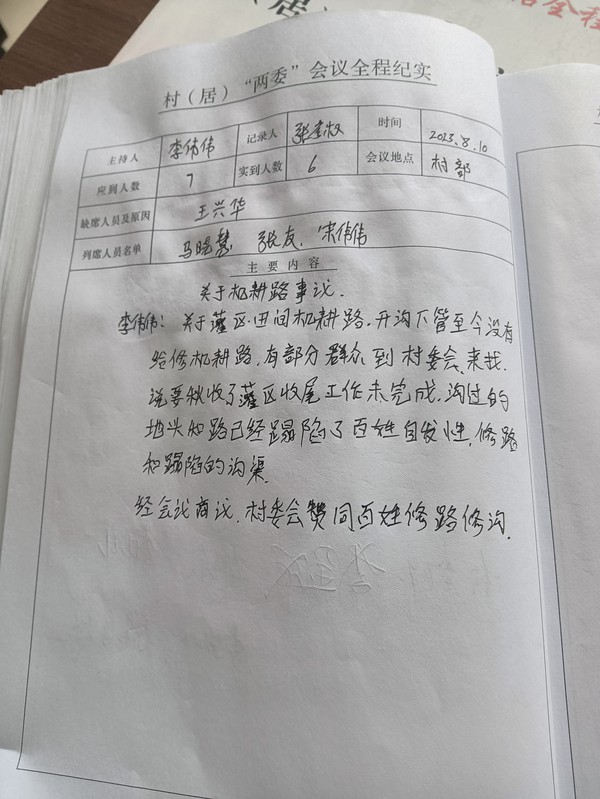 村（居）“两委”会议全程纪实
主持人 李伟伟 记录人 时间 2023.8.10
应到人数 7 实到人数 6 会议地点 村部
缺席人员及原因 王兴华
列席人员名单 马晓慧 张友 宋伟伟
主要内容
关于机耕路事议.
李伟伟：关于灌区.田间机耕路.开沟下管至今没有
给修机耕路.有部分群众到村委会.来找.
说要秋收了灌区收尾工作未完成.沟过的
地头和路已经蹋陷了百姓自发性.修路
和蹋陷的沟渠.
经会议商议.村委会赞同百姓修路修沟.